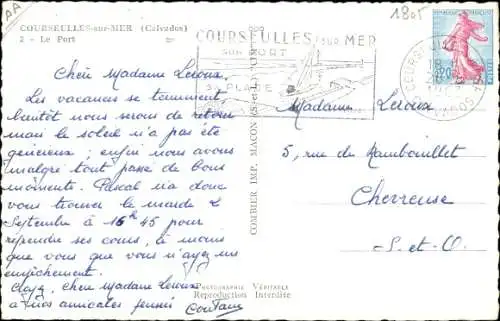 AA
COURSEULLES-sur-MER (Calvados)
2 - Le Port
1805
COURSEULLES SUR MER
SON PORT
SA PLAGE
18
Chère Madame Leroux,
Les vacances se terminent,
bientôt nous serons de retour
mais le soleil n'a pas été
généreux ; enfin nous avons
malgré tout passé de bons
moments. Pascal ira donc
vous trouver le mardi 2
Septembre à 16h45 pour
reprendre ses cours, à moins
que vous que vous n'ayez un
empêchement.
chère Madame Leroux
à nos amicales pensées
COMBIER IMP. MACON (S.-et-L.) "CIM"
PHOTOGRAPHIE VÉRITABLE
Reproduction Interdite
Madame Leroux
5, rue de Rambouillet
Chevreuse
S.-et-O.